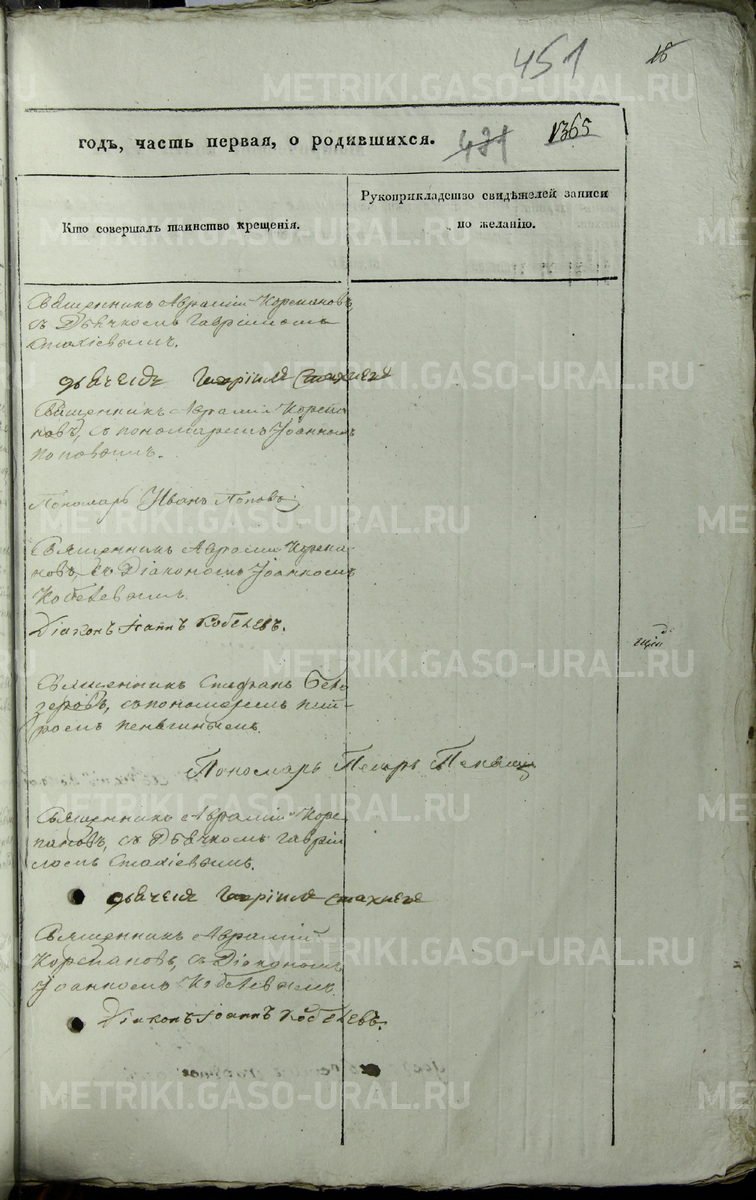 451
18
METRIKI.GASO-URAL.RU
годъ, часть первая, о родившихся.
431
1365
Кто совершалъ таинство крещенія.
Рукоприкладство свидѣтелей записи
по желанію.
Священникъ Аврамій Корепановъ,
съ Дьячкомъ Гавріиломъ
Стахіевымъ.
Гавріилъ
Священникъ Аврамій Корепа
новъ, съ пономаремъ Іоанномъ
Поповымъ.
Пономарь Иванъ Поповъ
METRIKI.GASO-URAL.RU
Священникъ Аврамій Корепа
новъ, съ Діакономъ Іоанномъ
Кобелевымъ.
Діаконъ Іоаннъ Кобелевъ.
METRIKI.GASO-URAL.RU
Священникъ Стефанъ Бело
зеровъ, съ пономаремъ Пет
ромъ Пеньгинымъ.
Пономарь Петръ
METRIKI.GASO-URAL.RU
Священникъ Аврамій Коре
пановъ, съ Дьячкомъ Гаврі
ломъ Стахіевымъ.
Гавріилъ
Священникъ Аврамій
Корепановъ, съ Діакономъ
Іоанномъ Кобелевымъ.
METRIKI.GASO-URAL.RU
Діаконъ Іоаннъ Кобелевъ.
METRIKI.GASO-URAL.RU